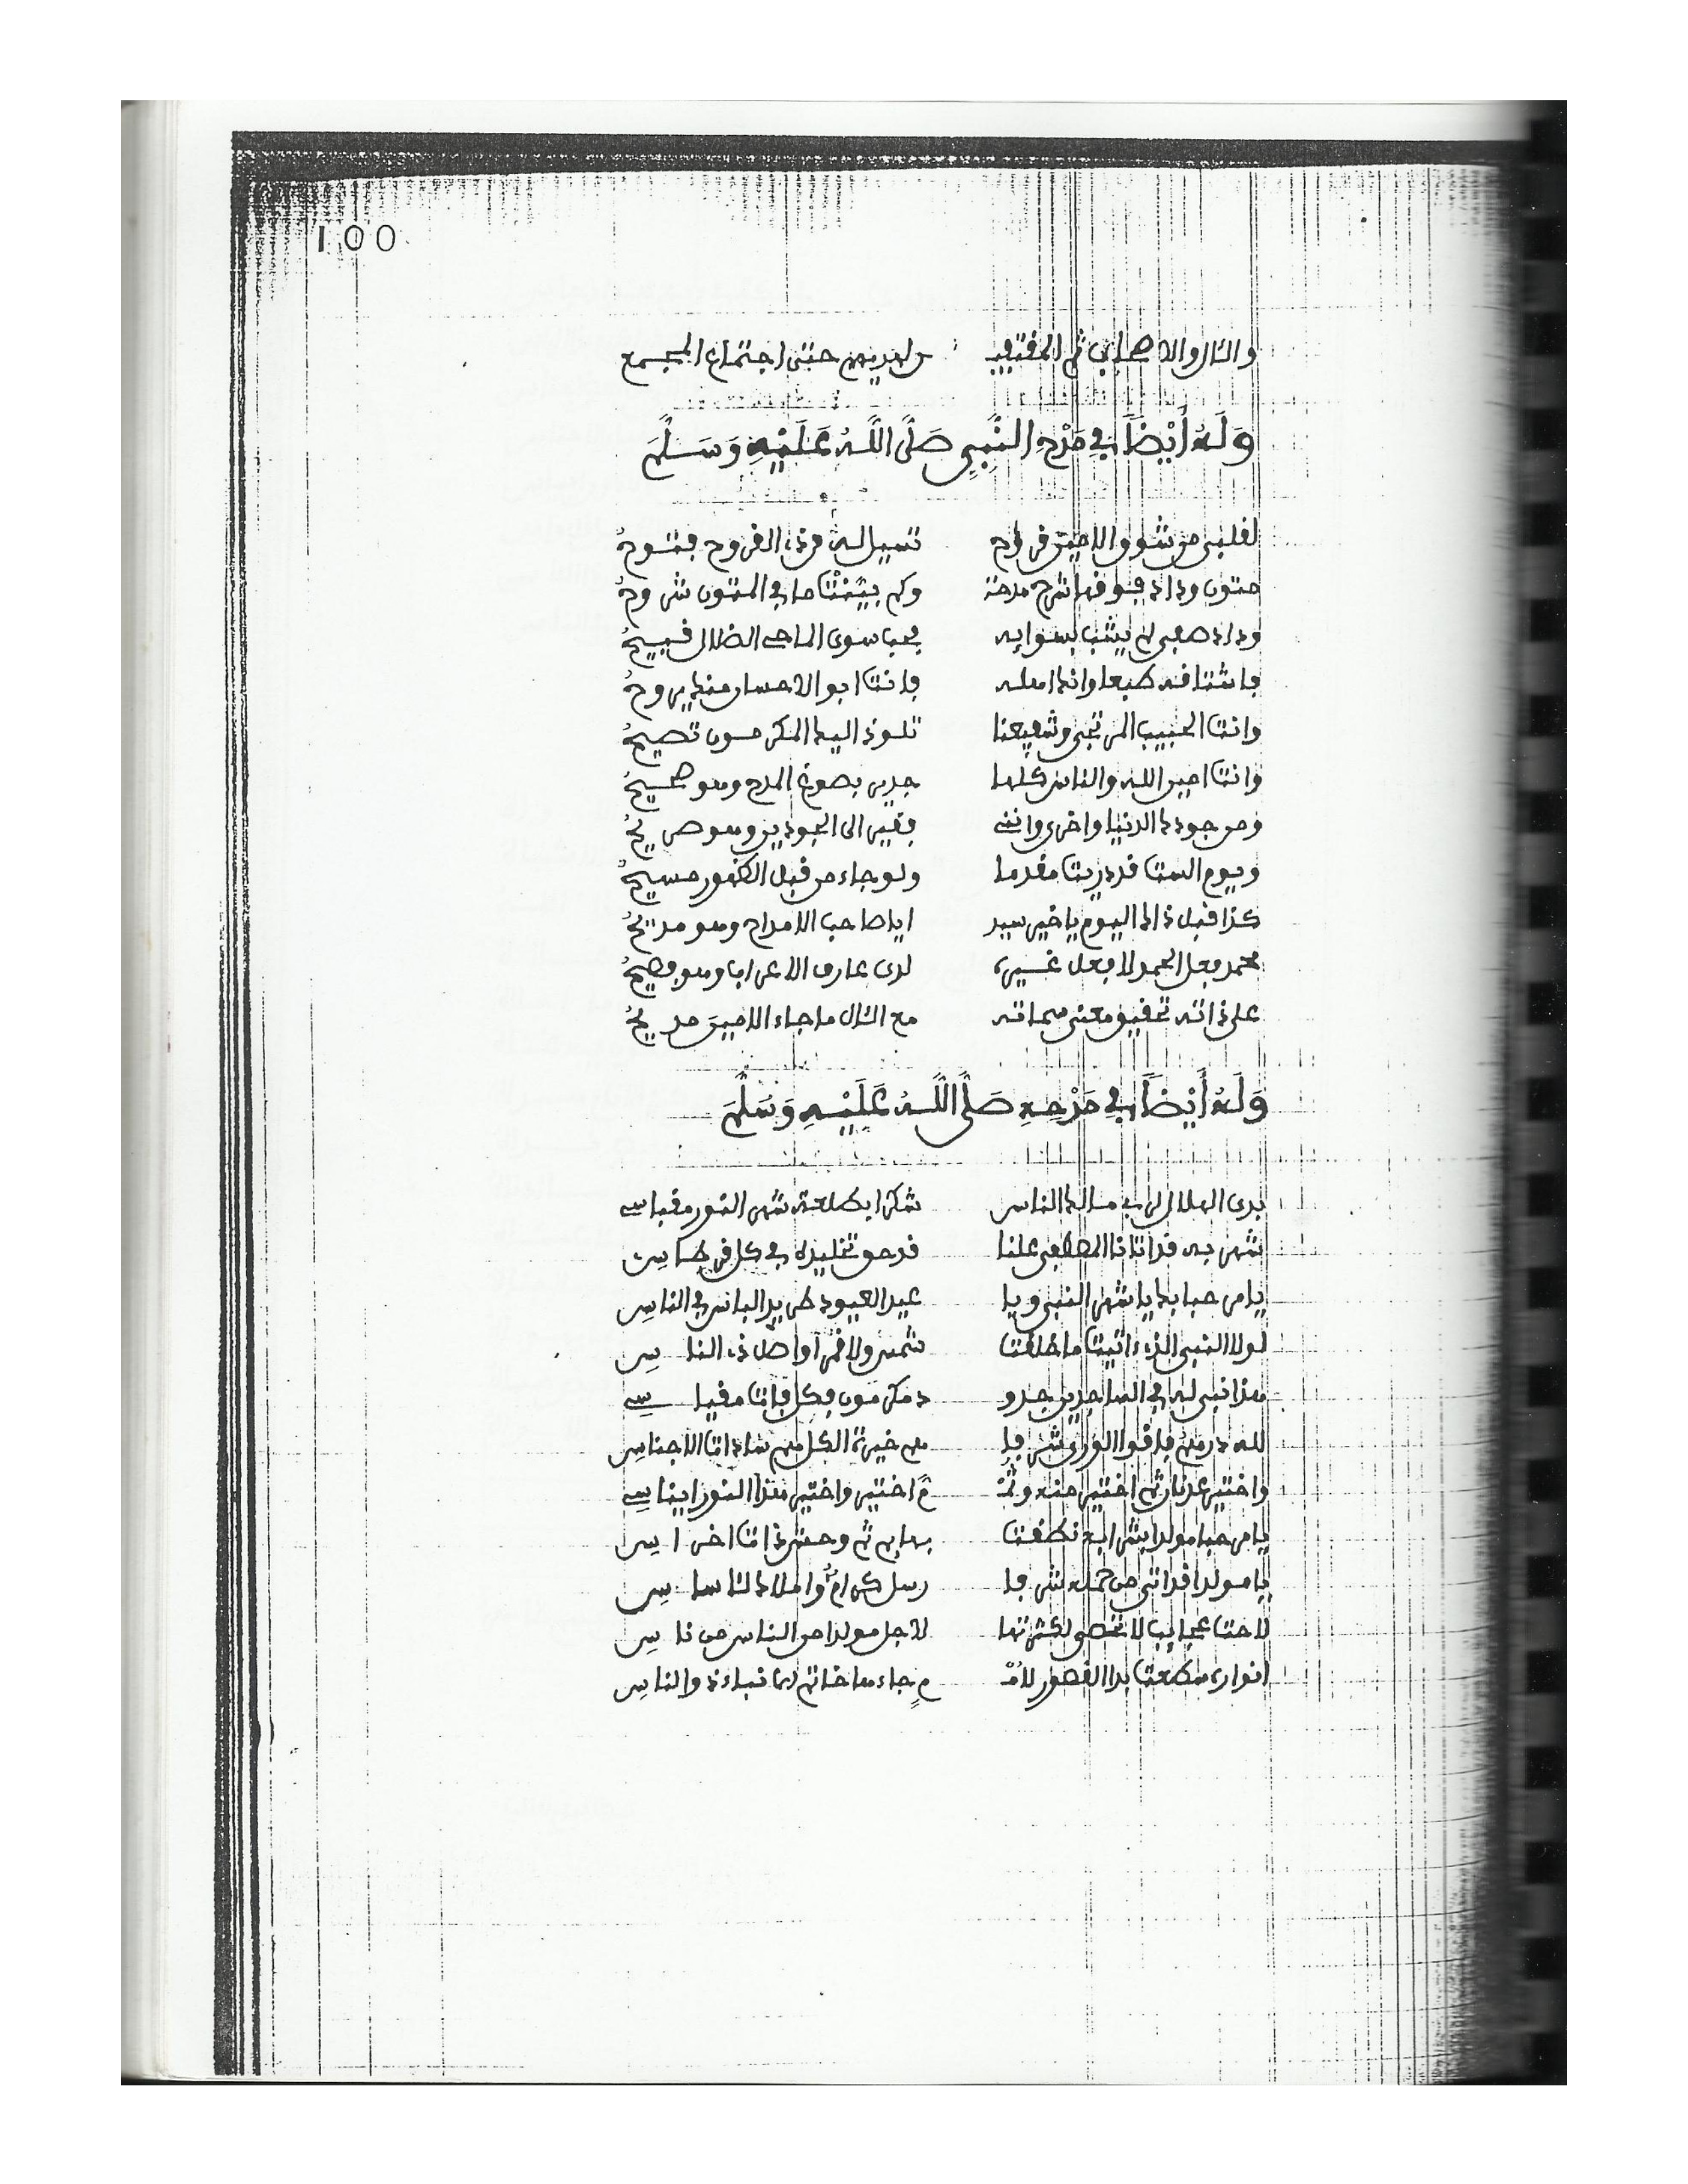 100
والئال والاصحاب ثم المقتفي لهديهم حتى اجتماع المجمع
وَلَهُ أَيْضاً فِي مَدْحِ النَّبِيِ صَلَّى اللَّهُ عَلَيْهِ وَسَلَّمَ
لقلبي من شوق الامين قروح تسيل له من ذي القروح فتوح
متون وداد فوقها شرح مدحة وكم بينتا ما في المتون شروح
وداد صفي لم يشب بسوايه فحب سوى الماحي الضلال قبيح
فاشتاقه طبعا وانك اهله فانت ابو الاحسان منك يروح
وانت الحبيب المرتجى وشفيعنا تلوذ اليك المكرمون تصيح
وانت امين الله والناس كلها جدير بصوغ المدح وهو
ومن جودك الدنيا واخرى وانني فقير الى الجودين وهو صريح
ويوم الست قد دريت مقدما ولو جاء من قبل الظهور مسيح
كذا قبل ذاك اليوم يا خير سيد ايا صاحب الامداح وهو مديح
محمد فعل الحمد لا فعل غيره لدى عارف الاعراب وهو فصيح
على ذاته تحقيق معنى سماته مع الئال ما جاء الامين مديح
وَلَهُ أَيْضاً فِي مَدْحِهِ صَلَّى اللَّهُ عَلَيْهِ وَسَلَّمَ
بدى الهلال لربي مالك الناس شكرا بطلعة شهر النور مقباس
شهر به قد اتانا المصطفى علنا قد حق تخليده في كل قرطاس
يا مرحبا بك يا شهر النبي ويا عيد العيود طريد الباس في الناس
لولا النبي الذي ءاتيت ما خلقت شمس ولا قمر او اصل ذي الناس
هذا نبي له في الساجدين جدو د مكرمون فكل فات مقياس
لله درهم فاقوا الورى شرفا هم خيرة الكل هم سادات الاجناس
واختير عدنان ثم اختير منه وثمـ ـمَ اختير واختير هذا النور ايناس
يا مرحبا مولدا بشرابه نطقت بهايم ثم وحش ذات اخراس
يا مولدا قد اتى من حمله شرفا رسل كرام واملاك لئاساس
لاحت عجايب لا تحصى لكثرتها لاجل مولدا من الناس من ناس
انواره سطعت بدا القصور لأمـ ـمٍ جاء ها خاتم انباء ذو الناس